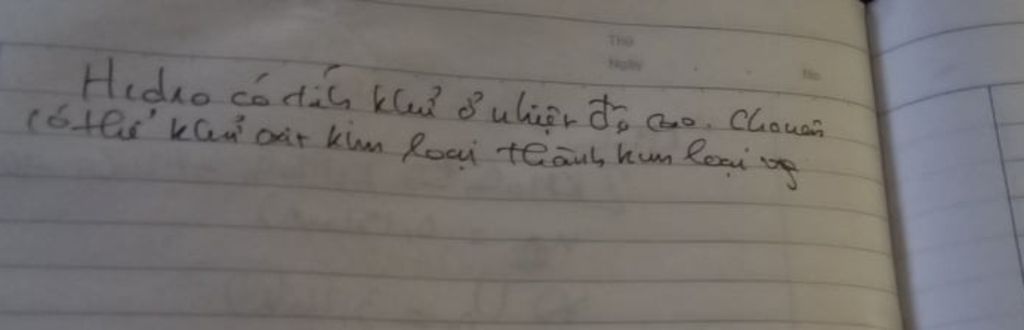 Thứ
Ngày
No
Hidro có tính khử ở nhiệt độ cao. Cho nên
có thể khử oxit kim loại thành kim loại